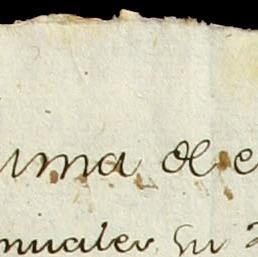 uma de e
nuales su